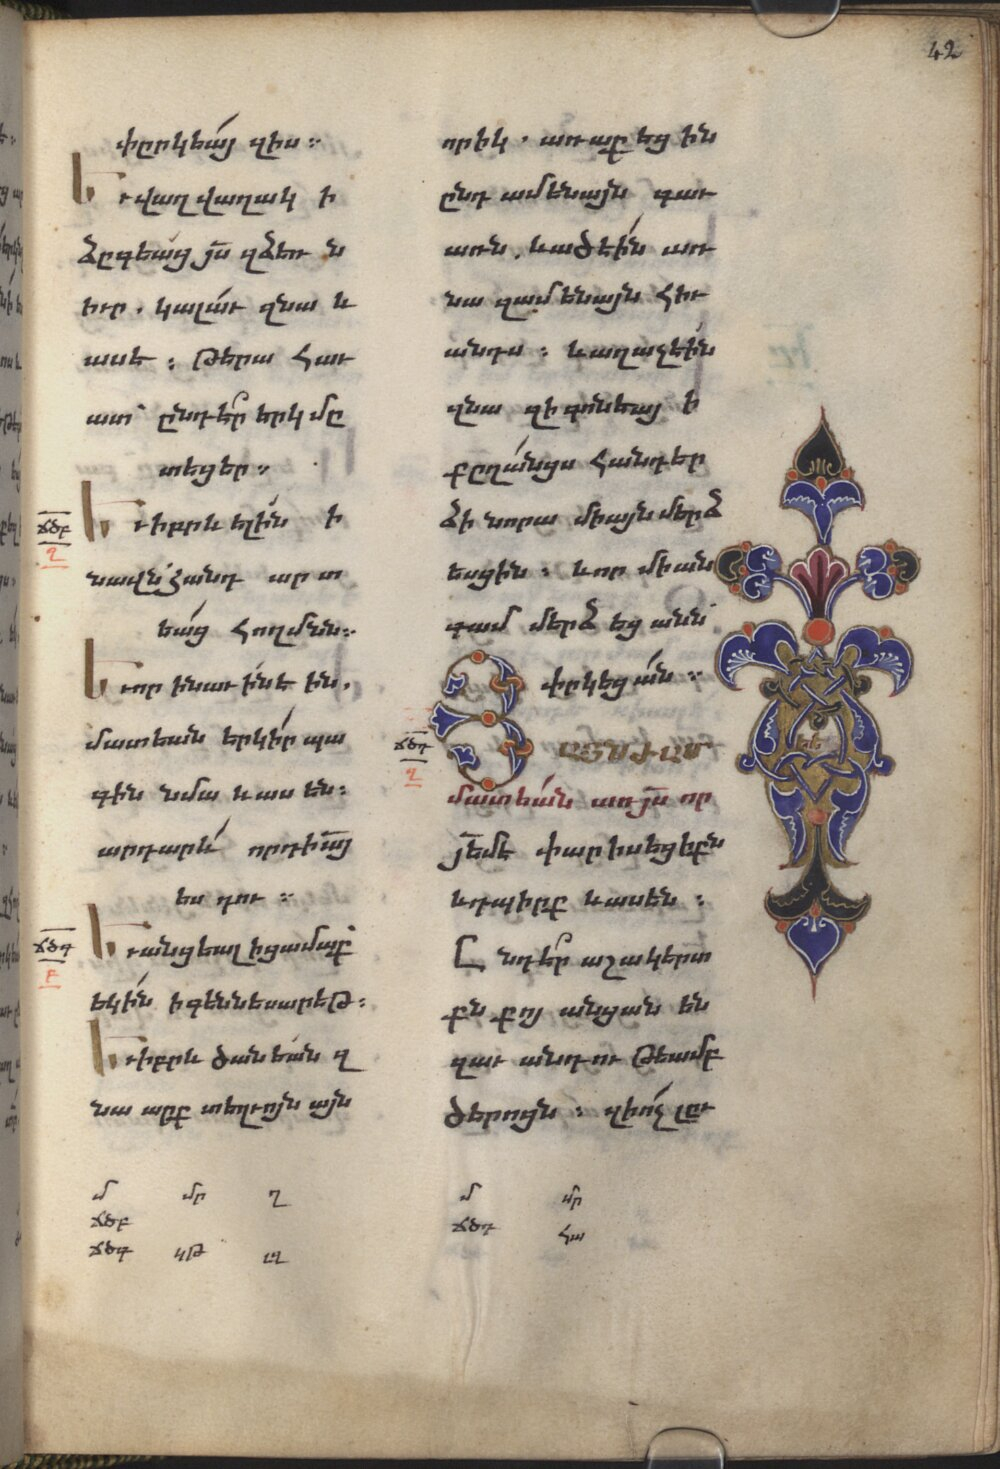 42
փըրկեա՛յ զիս։
Եւ վաղվաղակի
ձըգեաց յս զձեռն
իւր. կալաւ զնա և
ասէ։ Թերահաւ
ատ՝ ընդէ՞ր երկմը
տեցեր։
ՃԾԲ
Եւ իբրև ելին ի
նաւն՝ հանդարտ
եաց հողմնն։
Եւ որ ի նաւին էին.
մատեան երկիր պա
գին նմա և ասեն։
արդարև որդի այ
ես դու։
ՃԾԳ
Բ
Եւ անցեալ ի ցամաք՝
եկին ի գեննեսարէթ։
Եւ իբրև ծանեան զ
նա արք տեղւոյն այն
մ մր ղ
ՃԾԲ
ՃԾԳ ԿԹ
որիկ. առաքեցին
ընդ ամենայն գաւ
առն. և ածէին առ
նա զամենայն հիւ
անդս։ և աղաչէին
զնա զի գոնեայ ի
քըղանցս հանդեր
ձի նորա միայն մերձ
եսցին։ և որ միան
գամ մերձեցանն՝
փրկեցան։
ՃԾԴ
ՅԱՅՆԺԱՄ
մատեան առ յս որ
յեմէ փարիսեցիքն
և դպիրք և ասեն։
Ընդէ՞ր աշակերտ
քն քոյ անցանեն
զաւանդութեամբ
ծերոցն։ զի ոչ լըւ
մ մր
ՃԾԴ ՀԱ